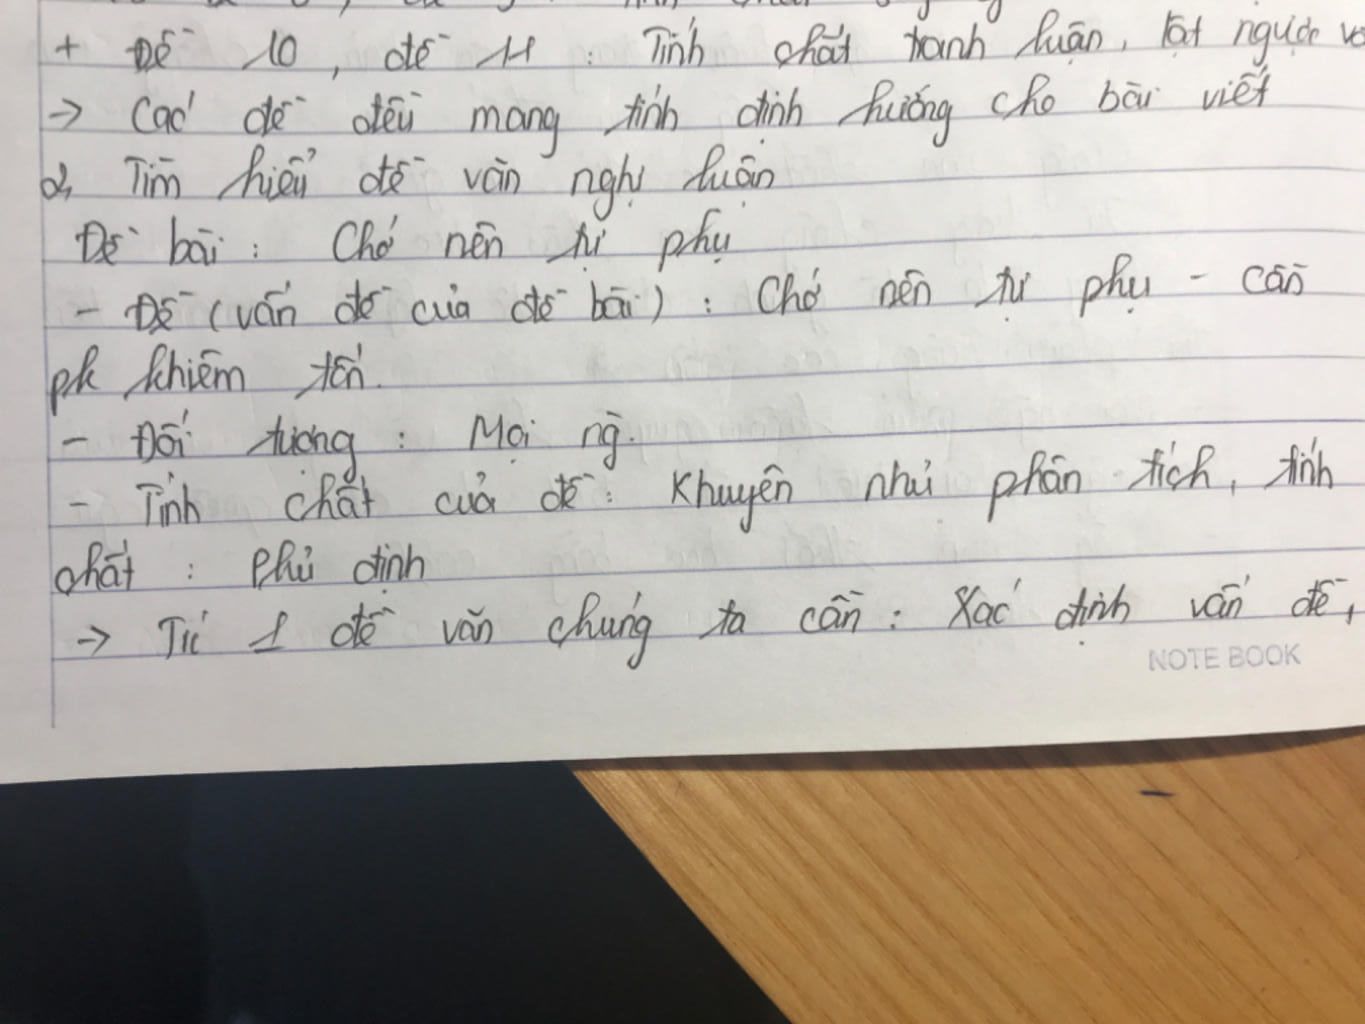 + Đề 10, đề 11 : Tính chất tranh luận, lật ngược
→ Các đề đều mang tính định hướng cho bài viết
2, Tìm hiểu đề văn nghị luận
Đề bài : Chớ nên tự phụ
- Đề (vấn đề của đề bài) : Chớ nên tự phụ - cần
pk khiêm tốn.
- Đối tượng : Mọi ng`.
- Tính chất của đề : Khuyên nhủ phân tích, tính
chất : Phủ định
→ Từ 1 đề văn chúng ta cần : Xác định vấn đề,
NOTE BOOK